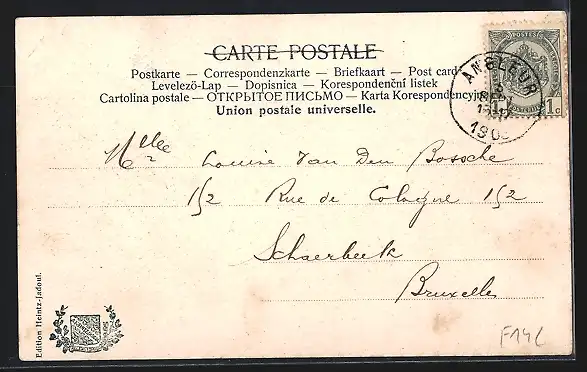 CARTE POSTALE
Postkarte — Correspondenzkarte — Briefkaart — Post card
Levelező-Lap — Dopisnica — Korespondenční listek
Cartolina postale — ОТКРЫТОЕ ПИСЬМО — Karta Korespondencyjna
Union postale universelle.
ANGLEUR
1 1c
Melle Louise Van Den Bossche
152 Rue de Cologne 152
Schaerbeek
Bruxelles
Edition Heintz-Jadoul.